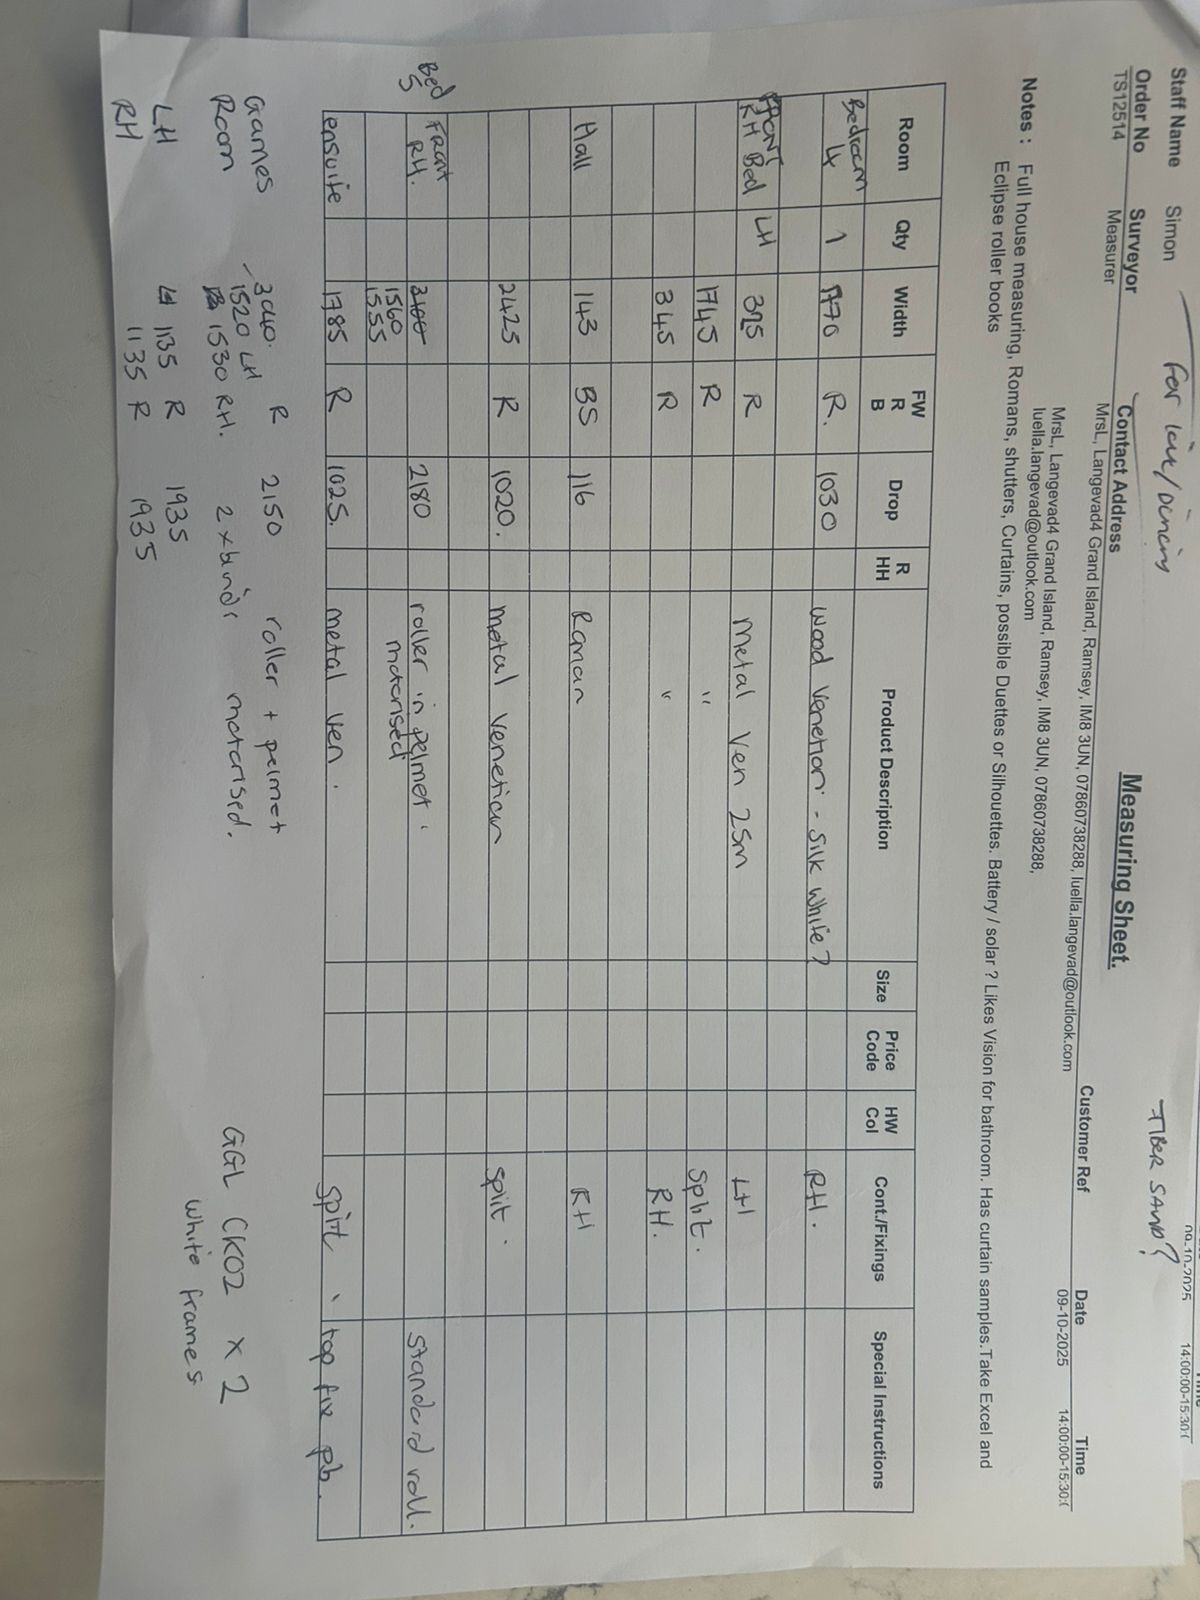 Staff Name Simon For live/dining TIBER SAND?
09-10-2025 14:00:00-15:30:(
Measuring Sheet.
Order No Surveyor Contact Address Customer Ref Date Time
TS12514 Measurer MrsL, Langevad4 Grand Island, Ramsey, IM8 3UN, 07860738288, luella.langevad@outlook.com 09-10-2025 14:00:00-15:30:(
MrsL, Langevad4 Grand Island, Ramsey, IM8 3UN, 07860738288,
luella.langevad@outlook.com
Notes : Full house measuring, Romans, shutters, Curtains, possible Duettes or Silhouettes. Battery / solar ? Likes Vision for bathroom. Has curtain samples.Take Excel and
Eclipse roller books
Room Qty Width FW R B Drop R HH Product Description Size Price Code HW Col Cont./Fixings Special Instructions
Bedroom 4 1 1770 R. 1030 Wood Venetian - Silk White? RH.
FRONT RH Bed LH 395 R Metal Ven 25m LH
1745 R " Split.
345 R " RH.
Hall 143 BS 116 Roman RH
2425 R 1020. Metal Venetian Split.
Bed 5 Front RH. 2180 roller in pelmet. Standard roll.
1560
1555 motorised
ensuite 1785 R 1025. metal ven. split, top fix pb.
Games Room 3040. R 2150 roller + pelmet
1520 LH
1530 RH. 2 x blinds motorised. GGL CK02 x 2
LH LH 1135 R 1935 white frames
RH 1135 R 1935